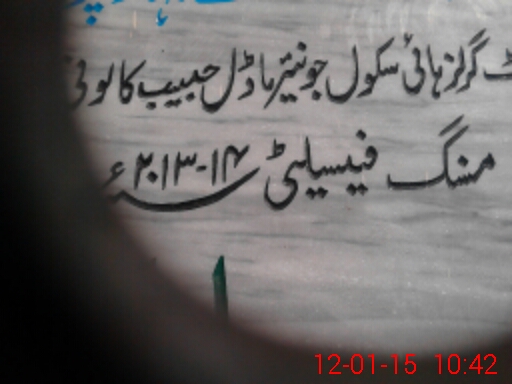 گرلز ہائی سکول جونیئر ماڈل حبیب کالونی
مسنگ فیسیلیٹی ۱۴-۲۰۱۳ء
12-01-15 10:42